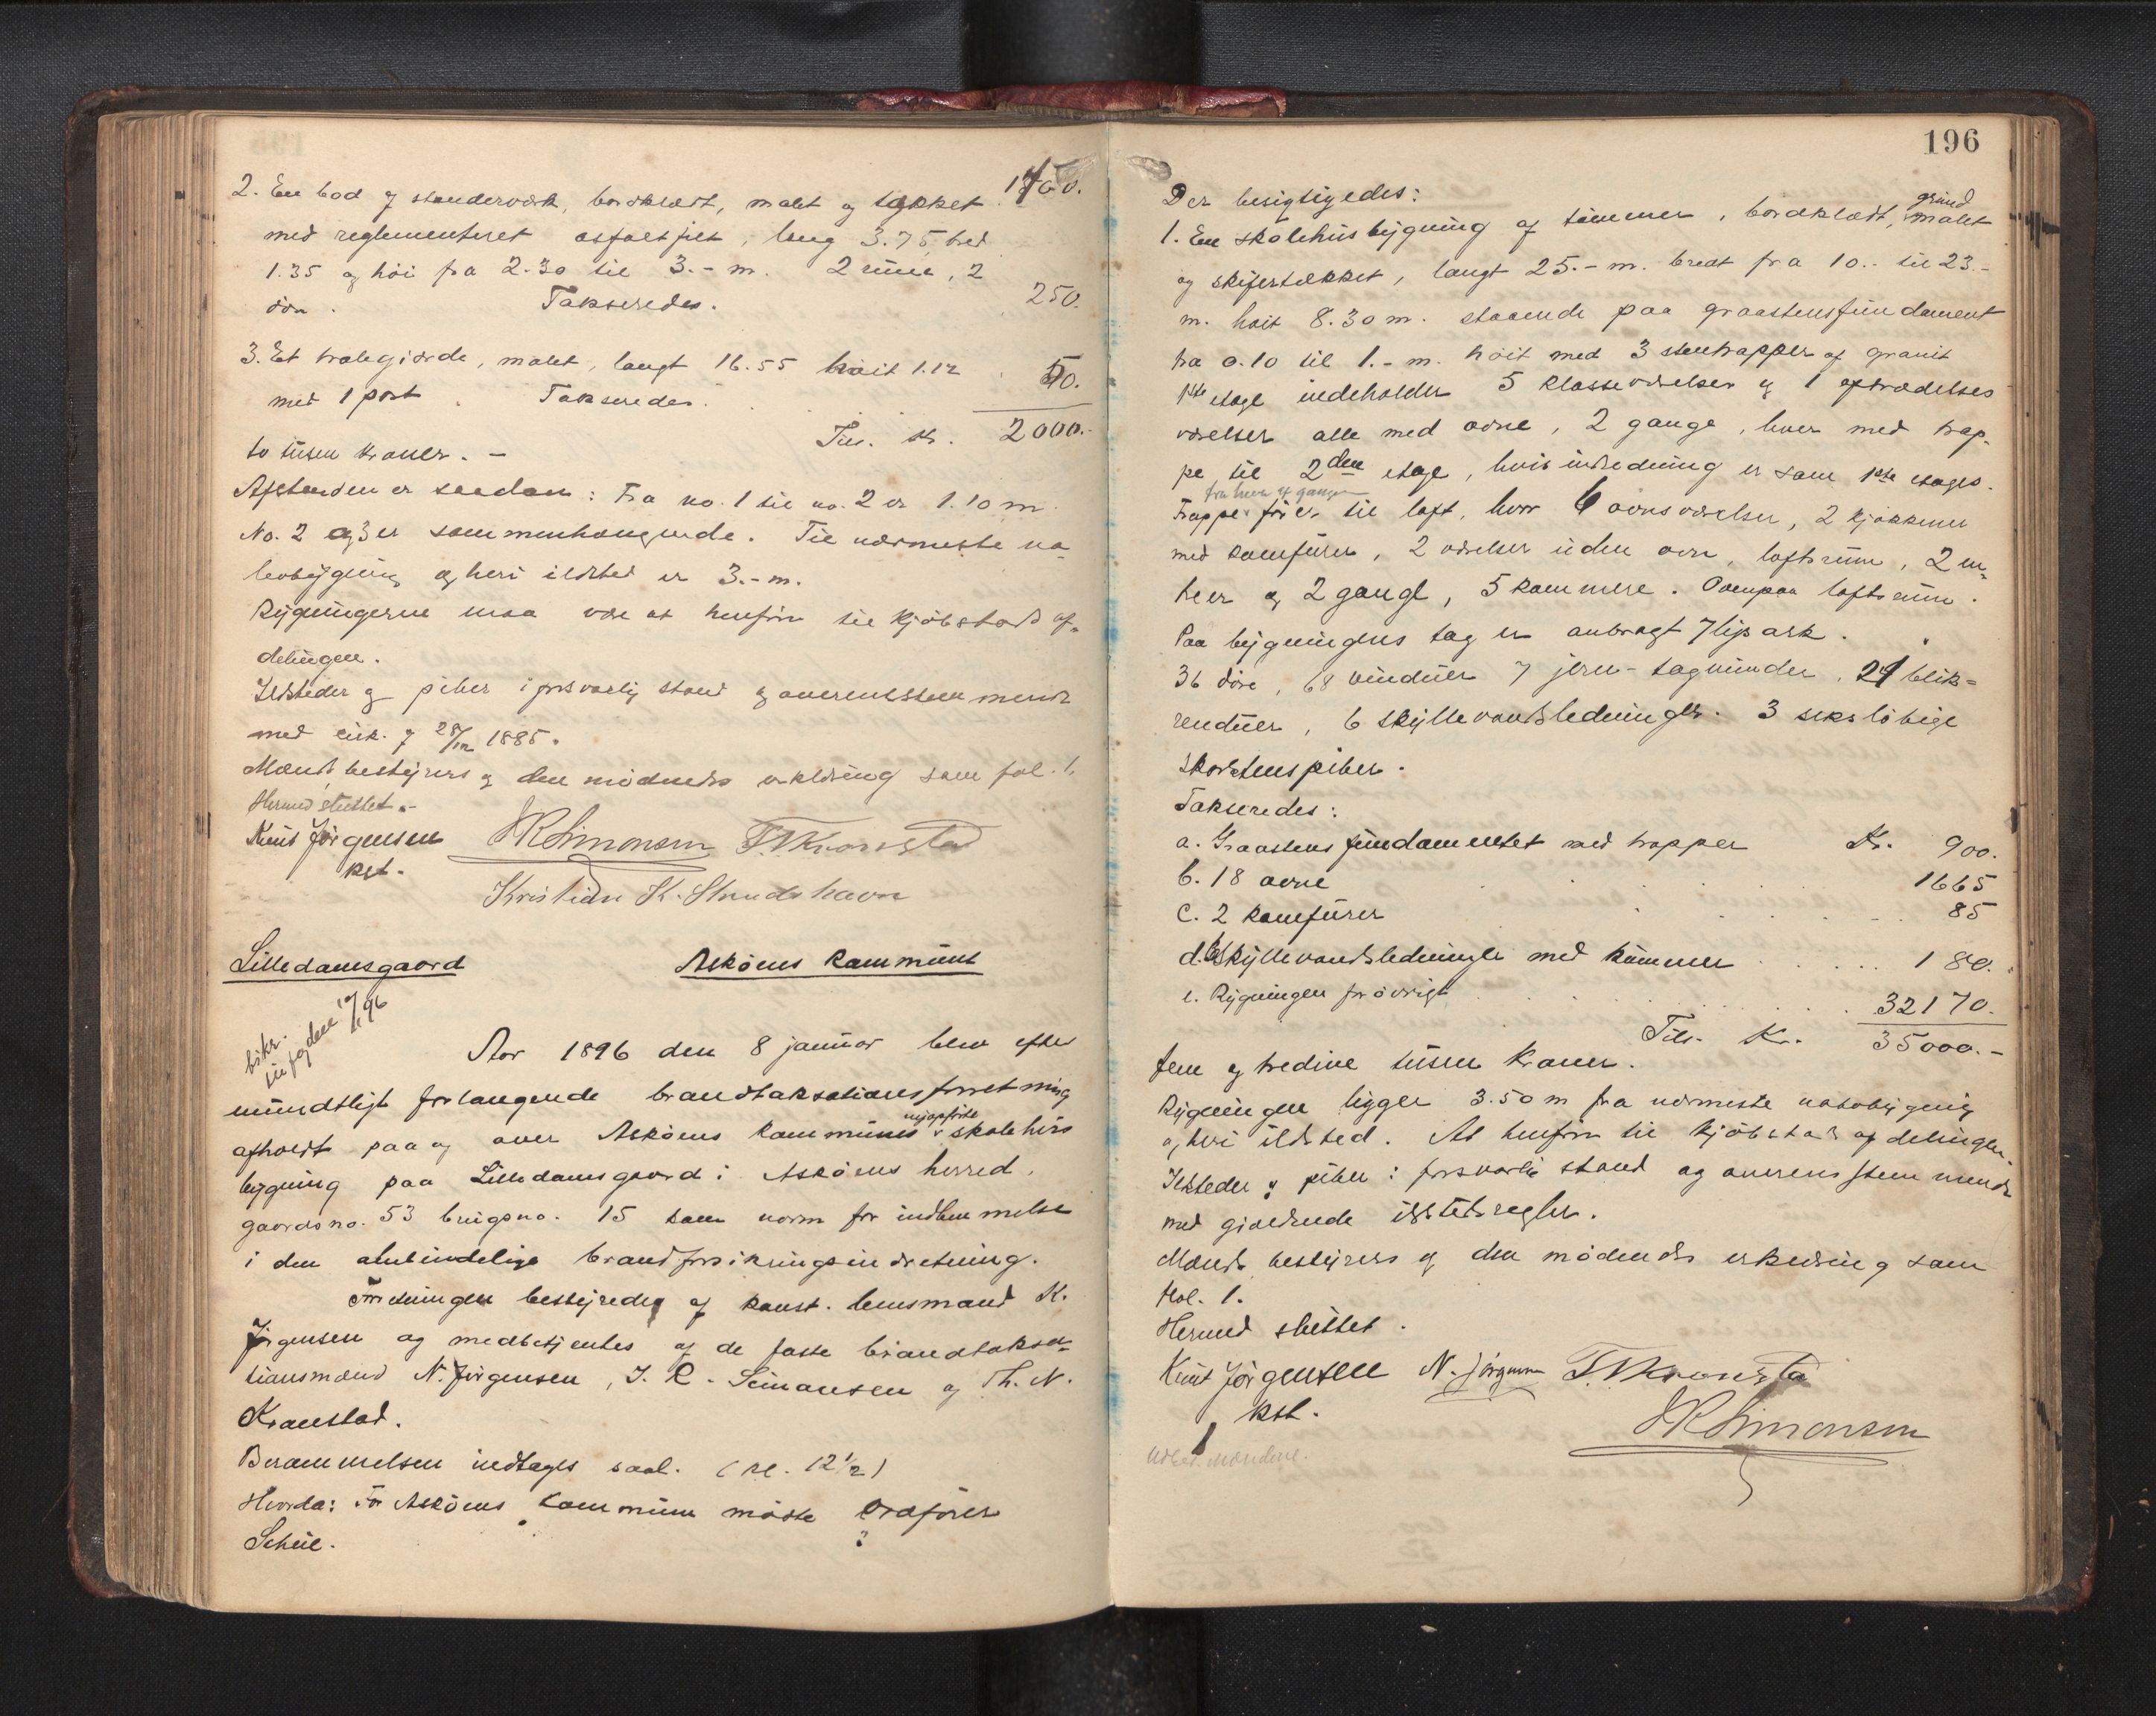 1700.
2. En bod af stenderværk, bordklædt, malet og tækket
med reglementeret asfaltfilt, lang 3.75, bred
1.35 og høi fra 2.30 til 3.- m. 2 rum, 2
døre. Takseredes. 250.
3. Et trælegjærde, malet, langt 16.55 høit 1.12
med 1 port. Takseredes. 50.
Tils. Kr. 2000.-
to tusen kroner. -
Afstanden er saadan: Fra no. 1 til no. 2 er 1.10 m.
No. 2 og 3 er sammenhængende. Til nærmeste na-
bobygning og heri ildsted er 3.- m.
Bygningerne maa være at henføre til kjøbstads af-
delingen.
Ildsteder og piber i forsvarlig stand og overensstemmende
med cirk. af 28/12 1885.
Mænds bestyrers og den mødendes erklæring som fol. 1.
Hermed sluttet.-
Knut Jørgensen JRSimonsen T.NKronstad
kst.
Kristian K. Strudshavn
Lilledamsgaard Askøens kommune
bskr.
til fogden 10/1 96
Aar 1896 den 8 januar blev efter
mundtligt forlangende brandtaksationsforretning
afholdt paa og over Askøens kommunes nyopførte skolehus
bygning paa Lilledamsgaard i Askøens herred,
gaardsno. 53 brugsno. 15 som norm for indlemmelse
i den almindelige brandforsikringsindretning.
Forretningen bestyredes af konst. lensmand K.
Jørgensen og medbetjentes af de faste brandtaksa-
tionsmænd N. Jørgensen, J. R. Simonsen og Th. N.
Kronstad.
Berammelsen indtages saal. (kl. 12 1/2)
Hvorda: For Askøens kommune mødte ordfører
196
Der besigtigedes:
1. En skolehusbygning af tømmer, bordklædt, grund malet
og skifertækket, langt 25.- m. bredt fra 10.- til 23.-
m. høit 8.30 m. staaende paa graastensfundament
fra 0.10 til 1.- m. høit med 3 stentrapper af granit
1ste etage indeholder 5 klasseværelser og 1 aftrædelses
værelser alle med ovne, 2 gange, hver med trap-
pe til 2den etage, hvis indredning er som 1ste etages.
fra hver af gangene
Trappe fører til loft, hvor 6 ovnsværelser, 2 kjøkkener
med komfurer, 2 værelser uden ovn, loftsrum, 2 en-
treer og 2 gange, 5 kammere. Ovenpaa loftsrum.
Paa bygningens tag er anbragt 7 lysark.
36 døre, 68 vinduer 7 jern-tagvinduer, 24 blik-
renduer, 6 skyllevandsledninger. 3 seksløbige
skorstenspiber.
Takseredes:
a. Graastensfundamentet med trapper Kr. 900.
b. 18 ovne 1665
c. 2 komfurer 85
d. 6 skyllevandsledninger med kummer 180.
e. Bygningen forøvrigt 32170.
Tils. Kr. 35000.-
fem og tredive tusen kroner.
Bygningen ligger 3.50 m fra nærmeste nabobygning
og heri ildsted. At henføre til kjøbstads afdelingen.
Ildsteder og piber i forsvarlig stand og overensstemmende
med gjældende ildstedsregler.
Mænds bestyrers og den mødendes erklæring som
fol. 1.
Hermed sluttet.
Knut Jørgensen N. Jørgensen T.NKronstad
kst.
JRSimonsen